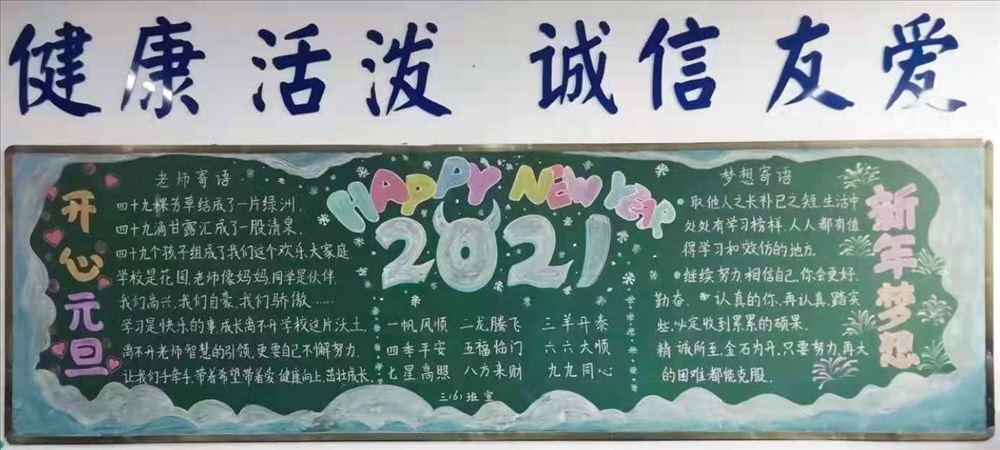 健康活泼 诚信友爱
开心元旦
老师寄语
四十九棵芳草结成了一片绿洲
四十九滴甘露汇成了一股清泉
四十九个孩子组成了我们这个欢乐大家庭
学校是花园,老师像妈妈,同学是伙伴.
我们高兴,我们自豪,我们骄傲……
学习是快乐的事,成长离不开学校这片沃土,
离不开老师智慧的引领,更要自己不懈努力.
让我们手牵手,带着希望带着爱,健康向上,茁壮成长.
HAPPY NEW YEAR
2021
一帆风顺 二龙腾飞 三羊开泰
四季平安 五福临门 六六大顺
七星高照 八方来财 九九同心
三(6)班宣
梦想寄语
取他人之长补已之短,生活中
处处有学习榜样,人人都有值
得学习和效仿的地方.
继续努力,相信自己,你会更好.
勤奋、认真的你,再认真,踏实
些,必定收到累累的硕果.
精诚所至,金石为开,只要努力,再大
的困难都能克服.
新年梦想